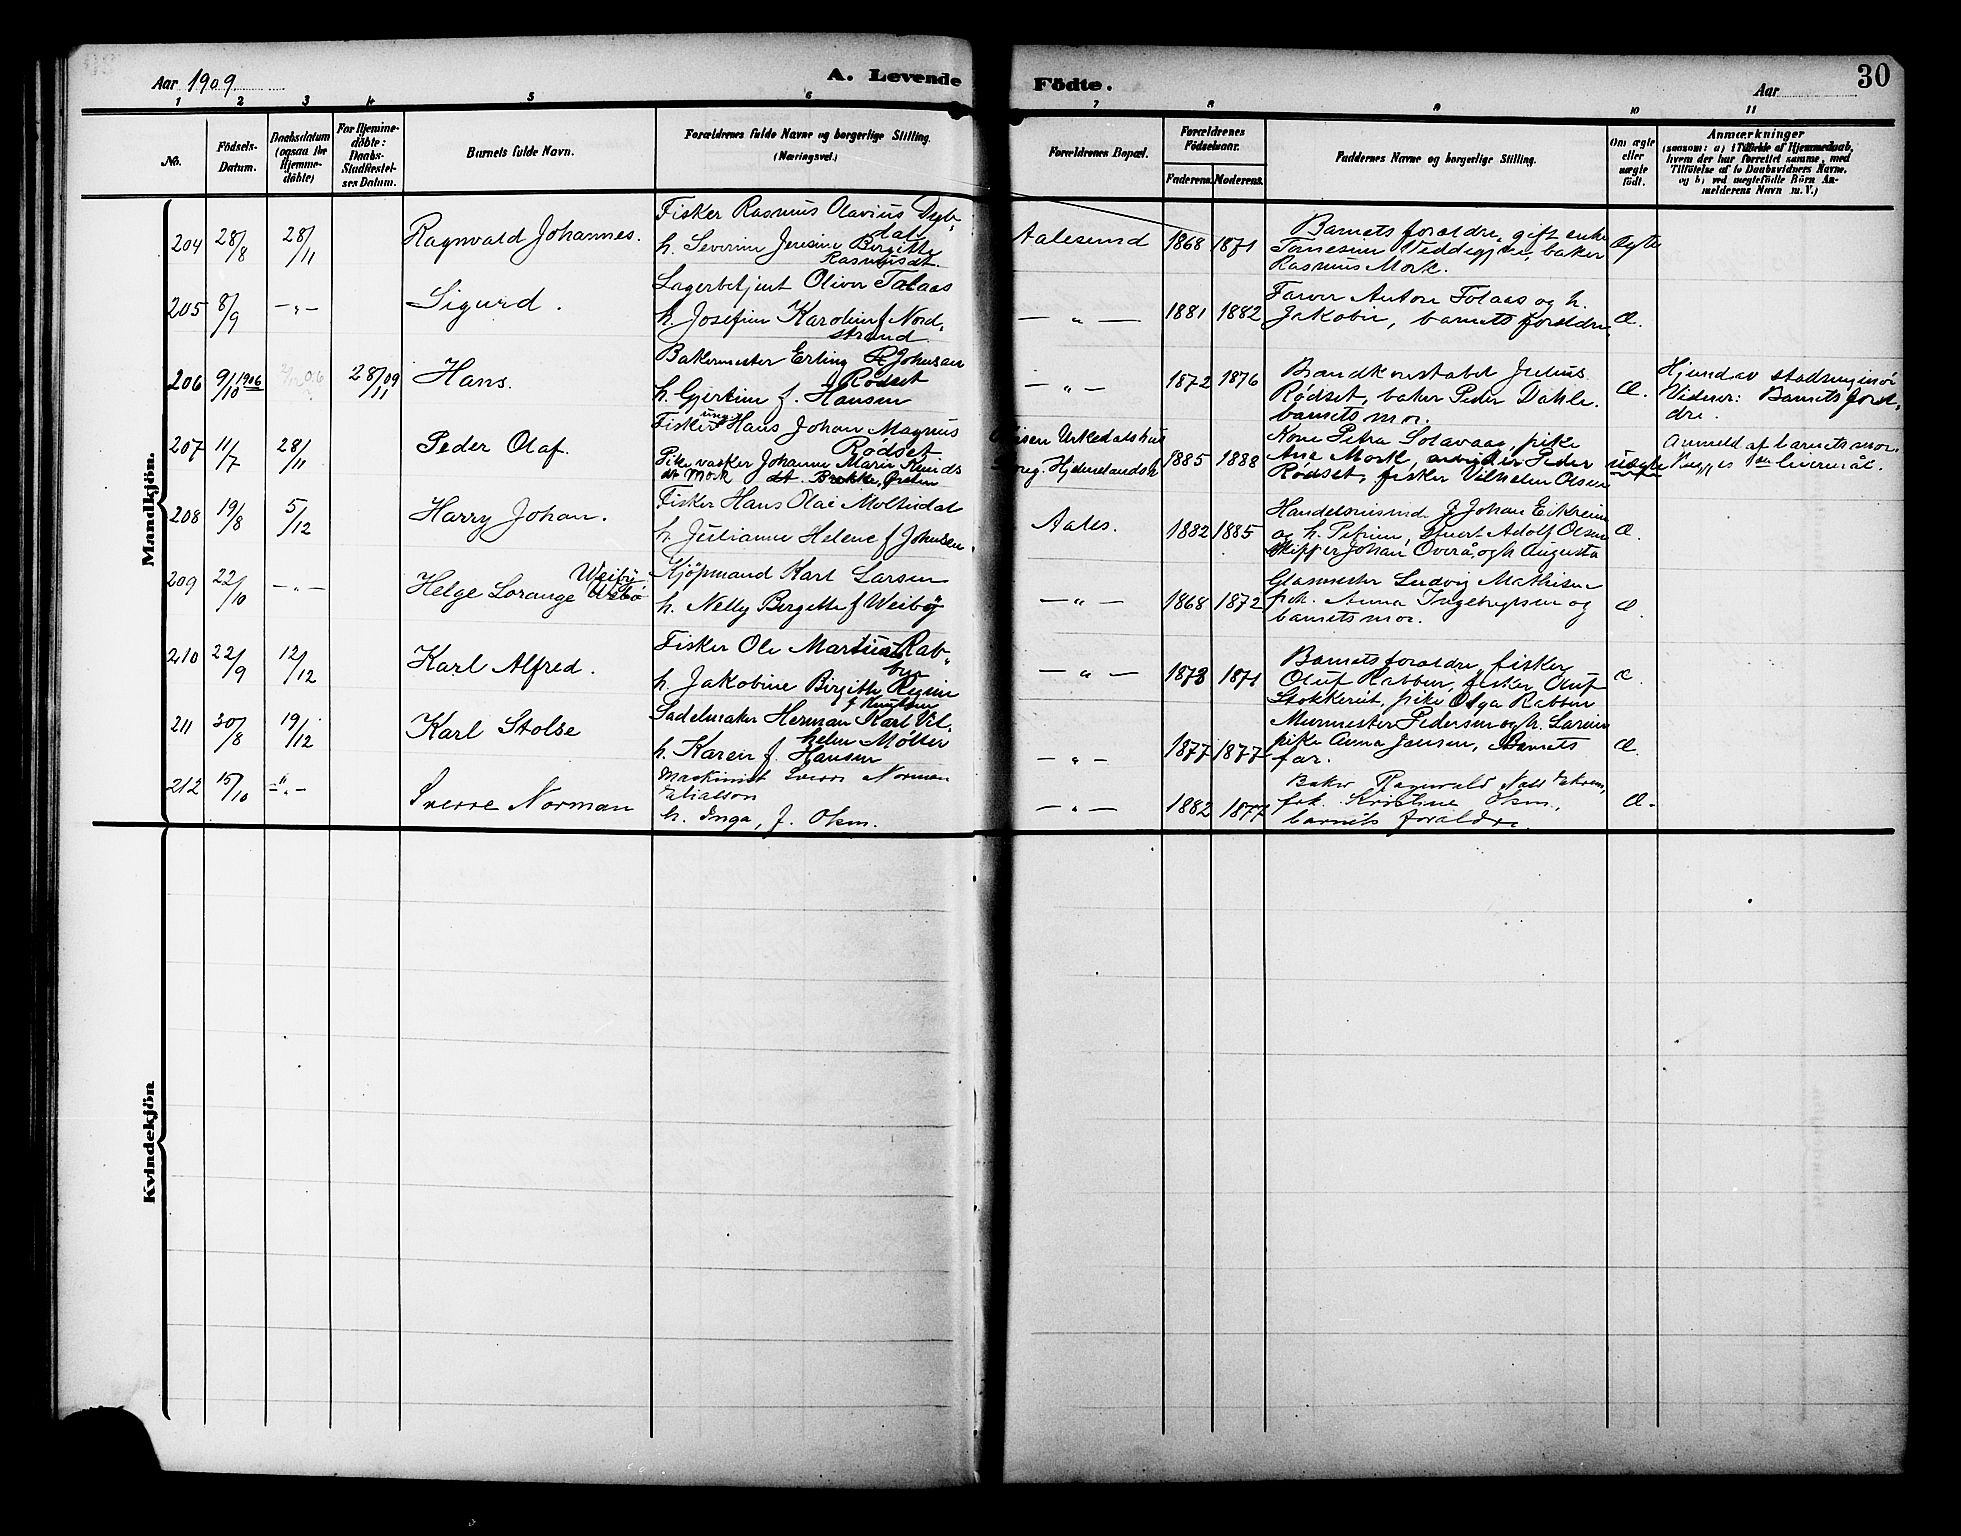 Aar 1909
A. Levende Födte.
Aar
30
1 2 3 4 5 6 7 8 9 10 11
No.
Födsels-
Datum.
Daabsdatum
(ogsaa for
Hjemme-
döbte)
For Hjemme-
döbte:
Daabs-
Stadfæstel-
ses Datum.
Barnets fulde Navn.
Forældrenes fulde Navne og borgerlige Stilling.
(Næringsvei.)
Forældrenes Bopæl.
Forældrenes
Födselsaar.
Faderens. Moderens.
Faddernes Navne og borgerlige Stilling.
Om ægte
eller
uægte
födt.
Anmærkninger
(saasom: a) i Tilfælde af Hjemmedaab,
hvem der har forrettet samme, med
Tilföielse af to Daabsvidners Navne,
og b) ved uægtefödte Börn An-
melderens Navn m. V.)
Mandkjön.
204 28/8 28/11 Ragnvald Johannes.
Fisker Rasmus Olavius Dyb-
dal
h. Severine Jensine Birgitte
Rasmusdt.
Aalesund 1868 1871
Barnets forældre, gift enke
baker
Rasmus Mork.
Ægte
205 8/9 -"- Sigurd.
Lagerbetjent Oliver Folaas
h. Josefine Karoline f Nord-
strand.
-"- 1881 1882
Farver Anton Folaas og h.
Jakobine, barnets forældre
Æ.
206 9/10 1906 28/11 09 Hans.
Bakermester Erling Johnsen
Rødset
h. Gjertine f. Hansen
-"- 1872 1876
Brandkonstabel Julius
Rødset, baker Peder Dahle.
barnets mor.
Æ.
Hjemd av
Vidner: Barnets foræl-
dre.
207 11/7 28/11 Peder Olaf.
Fisker ung. Hans Johan Magnus
Rødset
Pike, vasker Johanne Marie Knuds
dt. Mork
Urkedalshus
1885 1888
Kone Petra Solavaag, pike
Ane Mork, arbeider Peder
Rødset, fisker Vilhelm Olsen
uægte
Anmeld af barnets mor.
208 19/8 5/12 Harry Johan.
Fisker Hans Olai Moltudal
h. Julianne Helene f Johnsen.
Aales. 1882 1885
Johan Eikrem
og h. Petrine, Adolf Olsen
skipper Johan Overå, og h Augusta
Æ.
209 22/10 -"- Helge Lorange Weibÿ
Kjöpmand Karl Larsen
h. Nelly Bergitte f Weibÿ
-"- 1868 1872
Glasmester Ludvig Mathisen
frk. Anna Ingebrigtsen og
barnets mor.
Æ
210 22/9 12/12 Karl Alfred.
Fisker Ole Martius Rab-
ben
h. Jakobine Birgitte Regine
f Knutsen
-"- 1873 1871
Barnets forældre, fisker
Oluf Rabben, fisker Oluf
Stokkereit, pike Olga Rabben
Æ.
211 30/8 19/12 Karl Stolse
Sadelmaker Herman Karl Vil-
helm Möller
h. Karen f. Hansen
-"- 1877 1877
Murmester Pedersen og h. Larine
pike Anna Jansen, Barnets
far.
Æ.
212 15/10 -"- Sverre Norman
Maskinist Sverre Norman
Eliasson
h. Inga, f. Olsen.
-"- 1882 1877
Baker Ragnvald
frk. Kristine Olsen,
barnets forældre.
Æ.
Kvindekjön